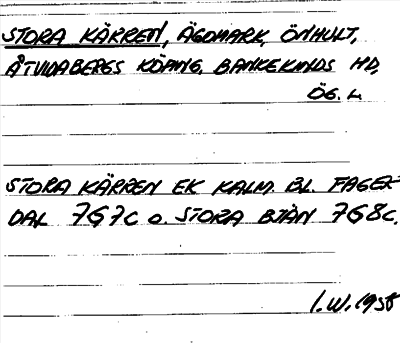 STORA KÄRREN, ÄGOMARK, ÖNHULT,
ÅTVIDABERGS KÖPING, BANKEKINDS HD,
ÖG. L
STORA KÄRREN EK KALM. BL. FAGER-
DAL 7G7c o. STORA BJÄN 7G8c.
I.W. 1958